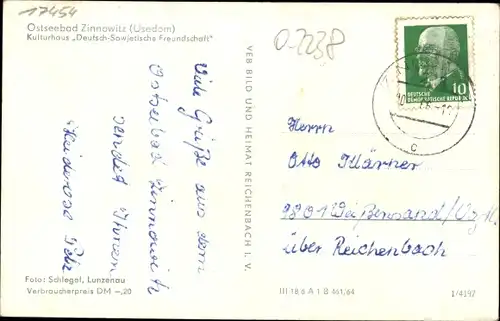 17454
Ostseebad Zinnowitz (Usedom)
Kulturhaus „Deutsch-Sowjetische Freundschaft"
O-2238
Viele Grüße aus dem
Ostseebad Zinnowitz
sendet Ihnen
Heiderose
Foto: Schlegel, Lunzenau
Verbraucherpreis DM –,20
VEB BILD UND HEIMAT REICHENBACH I. V.
10
DEUTSCHE
DEMOKRATISCHE REPUBLIK
c
Herrn
Otto Klärner
9801 Weißensand/Vgtl.
über Reichenbach
III 18 6 A 1 B 461/64
1/4197